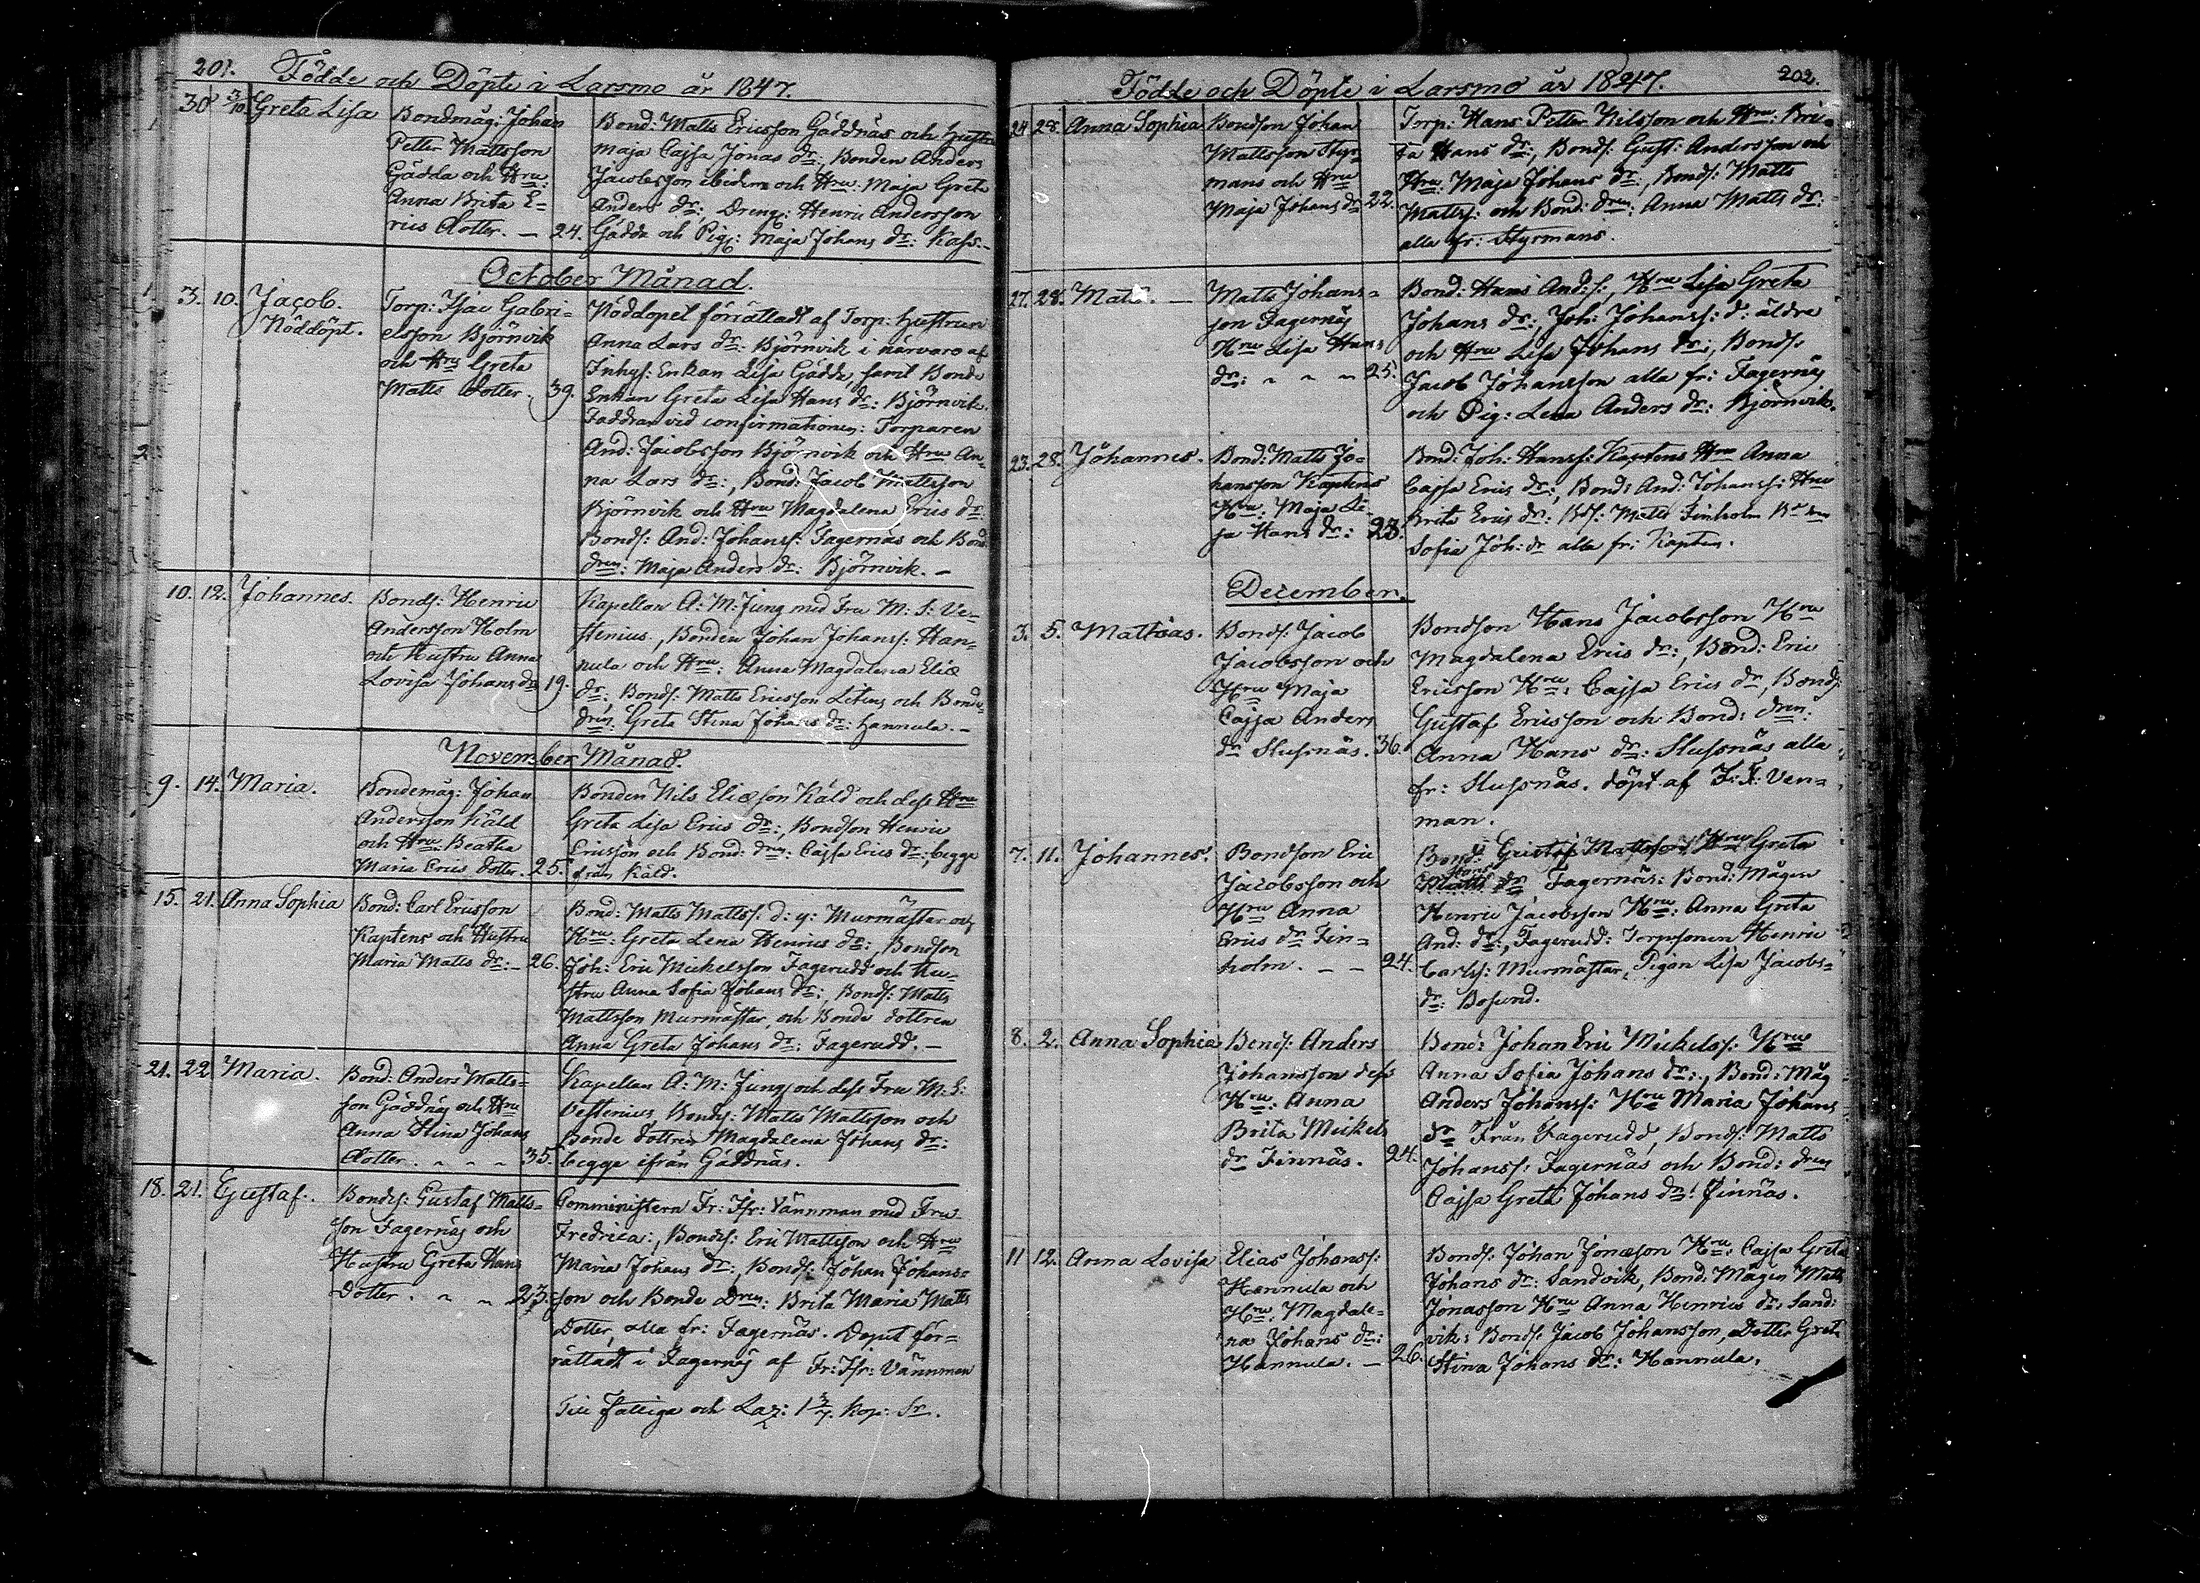 201. Födde och Döpte i Larsmo år 1847.
30 3/10. Greta Lisa
Bondmåg: Johan
Petter Mattsson
Gädda och Hru:
Anna Brita E=
rics dotter. — 24.
Bond: Matts Ericsson Gäddnäs och Hustru
Maja Cajsa Jonas dr:, Bonden Anders
Jacobsson ibidem och Hru: Maja Greta
Anders dr:, Dreng: Henric Andersson
Gädda och Pig: Maja Johans dr: Kass:—
October Månad.
3. 10. Jacob.
Nöddöpt.
Torp: Isac Gabri=
elsson Björnvik
och Hru Greta
Matts dotter. 39.
Nöddopet förrättadt af Torp: Hustrun
Anna Lars dr: Björnvik i närvaro af
Inhys: Enkan Lisa Gädda, samt Bonde
Enkan Greta Lisa Hans dr: Björnvik.
Faddrar vid confirmationen: Torparen
And: Jacobsson Björnvik och Hru An=
na Lars dr:, Bond: Jacob Mattsson
Björnvik och Hru Magdalena Erics dr:
Bonds: And: Johanss: Fagernäs och Bond:
dren: Maja Anders dr: Björnvik. —
10. 12. Johannes.
Bonds: Henric
Andersson Holm
och Hustru Anna
Lovisa Johans dr 19.
Kapellan A: M: Jung med Fru M: S: Ve=
stenius, Bonden Johan Johanss: Han=
nula och Hru: Anna Magdalena Eliæ
dr: Bonds: Matts Ericsson och Bonde
dren: Greta Stina Johans dr: Hannula. —
November Månad.
9. 14. Maria.
Bondemåg: Johan
Andersson Käld
och Hru: Beatha
Maria Erics dotter. 25.
Bonden Nils Eliæson Käld och dess Hru
Greta Lisa Erics dr:, Bondson Henric
Ericsson och Bond: dren: Cajsa Erics dr: begge
från Käld.
15. 21. Anna Sophia
Bond: Carl Ericsson
Kaptens och Hustru
Maria Matts dr: — 26.
Bond: Matts Mattss: d: y: Murmästar och
Hru: Greta Lena Henrics dr:, Bondson
Joh: Eric Mickelsson Fagerudd och Hu=
stru Anna Sofia Johans dr:, Bonds: Matts
Mattsson Murmästar, och Bonde dottren
Anna Greta Johans dr: Fagerudd. —
21. 22 Maria.
Bond: Anders Matts=
son Gäddnäs och Hru
Anna Stina Johans
dotter. 35.
Kapellan A: M: Jung och dess Fru M: S:
Vestenius, Bonds: Matts Mattsson och
Bonde dottren Magdalena Johans dr:
begge ifrån Gäddnäs.
18. 21. Gustaf.
Bonds: Gustaf Matts=
son Fagernäs och
Hustru Greta Hans
Dotter. 23.
Comministern Fr: Isr: Vännman med Fru
Fredrica:, Bonds: Eric Mattsson och Hru
Maria Johans dr:, Bonds: Johan Johans=
son och Bonde Dren: Brita Maria Matts
Dotter, alla fr: Fagernäs. Döput för=
rättadt i Fagernäs af Fr: Isr: Vännman
Till Fattiga och Laz: Kop: Sr.
Födde och Döpte i Larsmo år 1847. 202.
24 28. Anna Sophia
Bondson Johan
Mattsson Styr=
mans och Hru
Maja Johans dr 22.
Torp: Hans Petter Nilsson och Hru: Bri=
ta Hans dr:, Bonds: Gust: Andersson och
Hru: Maja Johans dr:, Bonds: Matts
Mattss: och Bond: dren: Anna Matts dr:
alla fr: Styrmans.
27. 28. Matts. —
Matts Johans=
son Fagernäs
Hru Lisa Hans
dr: 25.
Bond: Hans And:s:, Hru Lisa Greta
Johans dr:, Joh: Johanss: d: äldre
och Hru Lisa Johans dr:, Bonds:
Jacob Johansson alla fr: Fagernäs
och Pig: Lena Anders dr: Björnvik.
23. 28. Johannes.
Bond: Matts Jo=
hansson Kaptens
Hru: Maja Li=
sa Hans dr: 23.
Bond: Joh: Hanss: Kaptens Hru Anna
Cajsa Erics dr:, Bond: And: Johanss: Hru
Brita Erics dr: Bds: Matts Finholm Bd dren
Sofia Joh: dr alla fr: Kapten.
December.
3. 5. Matthias.
Bonds: Jacob
Jacobsson och
Hru Maja
Cajsa Anders
dr Slussnäs. 36.
Bondson Hans Jacobsson Hru
Magdalena Erics dr:, Bond: Eric
Ericsson Hru: Cajsa Erics dr, Bonds:
Gustaf Ericsson och Bond: dren:
Anna Hans dr: Slussnäs alla
fr: Slussnäs. döpt af F: I: Ven=
man.
7. 11. Johannes.
Bondson Eric
Jacobsson och
Hru Anna
Erics dr Fin=
holm. — — 24.
Bond: Gustaf Mattsson Hru Greta
Hans dr Fagernäs: Bond: Mågen
Henric Jacobsson Hru: Anna Greta
And: dr:, Fagerudd: Torpsonen Henric
Carlss: Murmästar, Pigan Lisa Jacobs=
dr: Bosund.
8. 2. Anna Sophia
Bonds: Anders
Johansson dess
Hru: Anna
Brita Mickels
dr Finnäs. 24.
Bond: Johan Eric Mickelss: Hru
Anna Sofia Johans dr:, Bond: Måg
Anders Johanss: Hru Maria Johans
dr Från Fagerudd, Bonds: Matts
Johanss: Fagernäs och Bond: dren
Cajsa Greta Johans dr: Finnäs.
11 12. Anna Lovisa
Elias Johanss:
Hannula och
Hru: Magdale=
na Johans dr:
Hannula. — 26.
Bonds: Johan Jonæson Hru: Cajsa Greta
Johans dr: Sandvik, Bond: Mågen Matts
Jonasson Hru Anna Henrics dr: Sand:
vik: Bonds: Jacob Johansson, Dotter Greta
Stina Johans dr: Hannula.